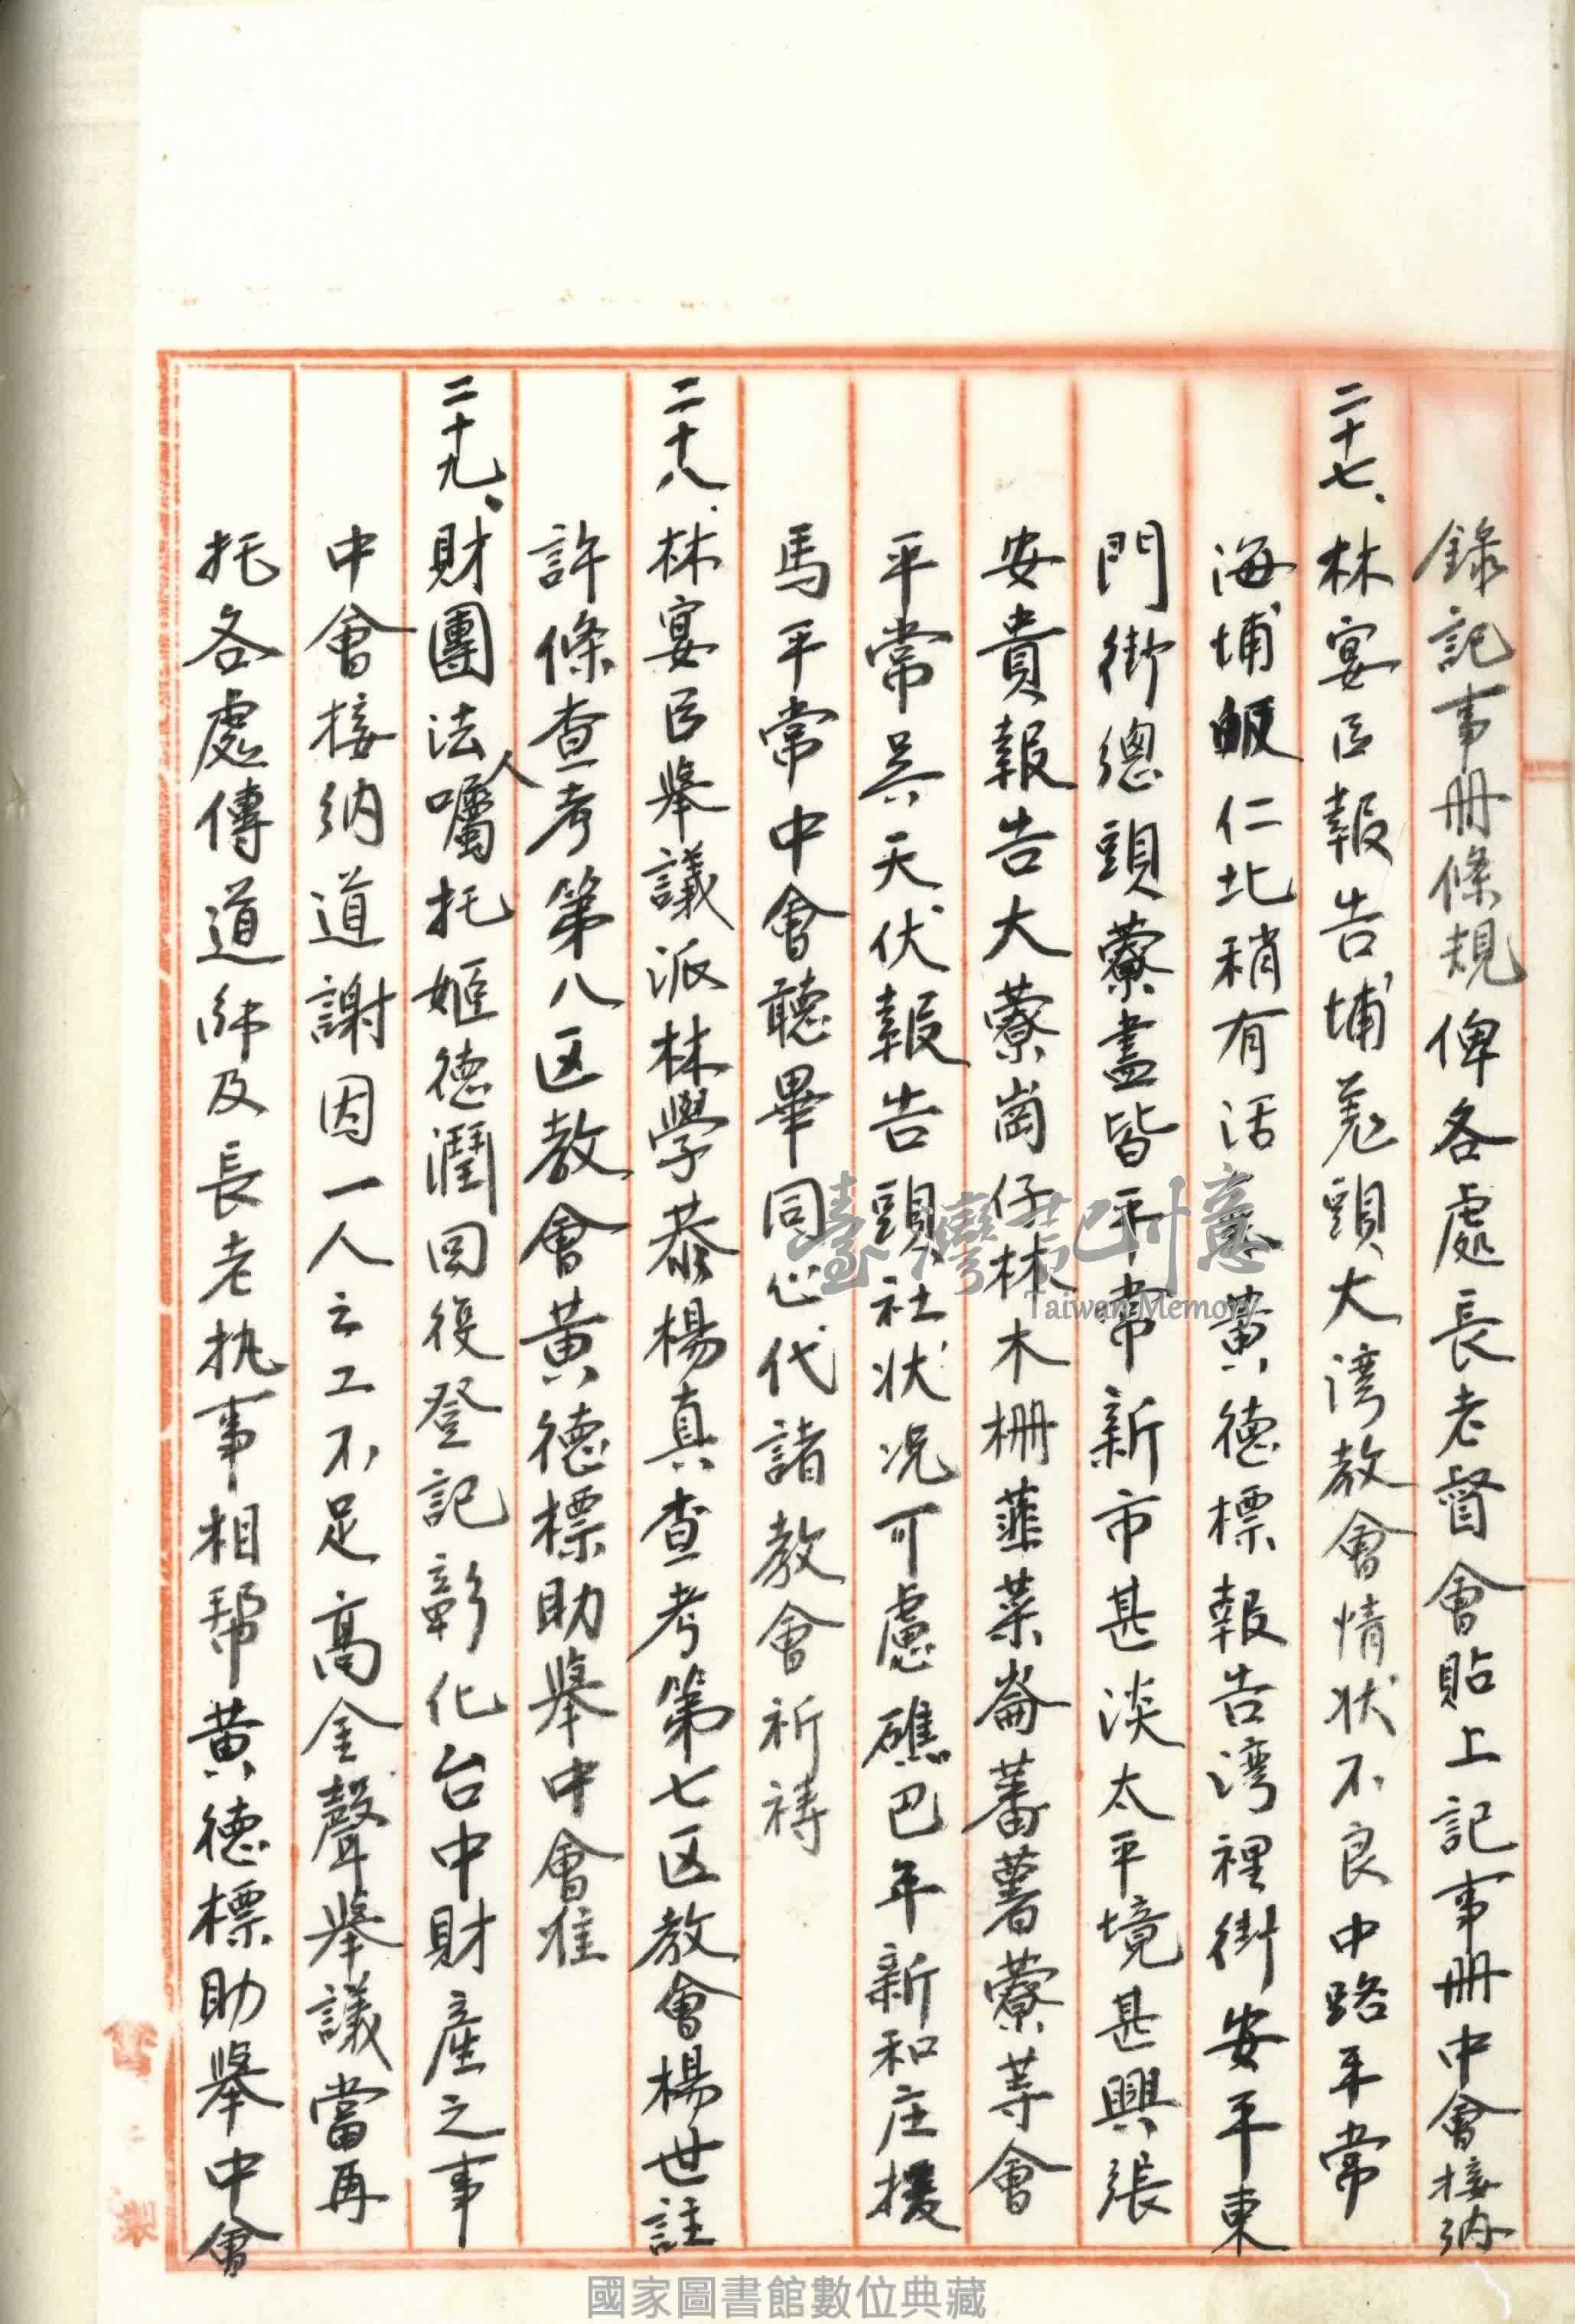 錄記事册條規俾各處長老督會貼上記事册中會接納
二十七、林宴臣報告埔羌頭大湾教會情狀不良中路平常
海埔 仁北稍有活意黄德標報告湾裡街安平東
門街總頭藔盡皆平常新市甚淡太平境甚興張
安貴報告大藔崗仔林木柵韮菜崙蕃薯藔等會
平常吳天伏報告頭社狀况可慮礁巴年新和庄拔
馬平常中會聽畢同心代諸教會祈禱
二十八、林宴臣舉議派林學恭楊真查考第七区教會楊世註
許條查考第八区教會黃德標助舉中會准
二十九、財團法人囑托姬德潤回復登記彰化台中財產之事
中會接納道謝因一人之工不足高金聲舉議當再
托各處傳道師及長老执事相帮黄德標助舉中會
臺灣記憶
Taiwan Memory
國家圖書館數位典藏